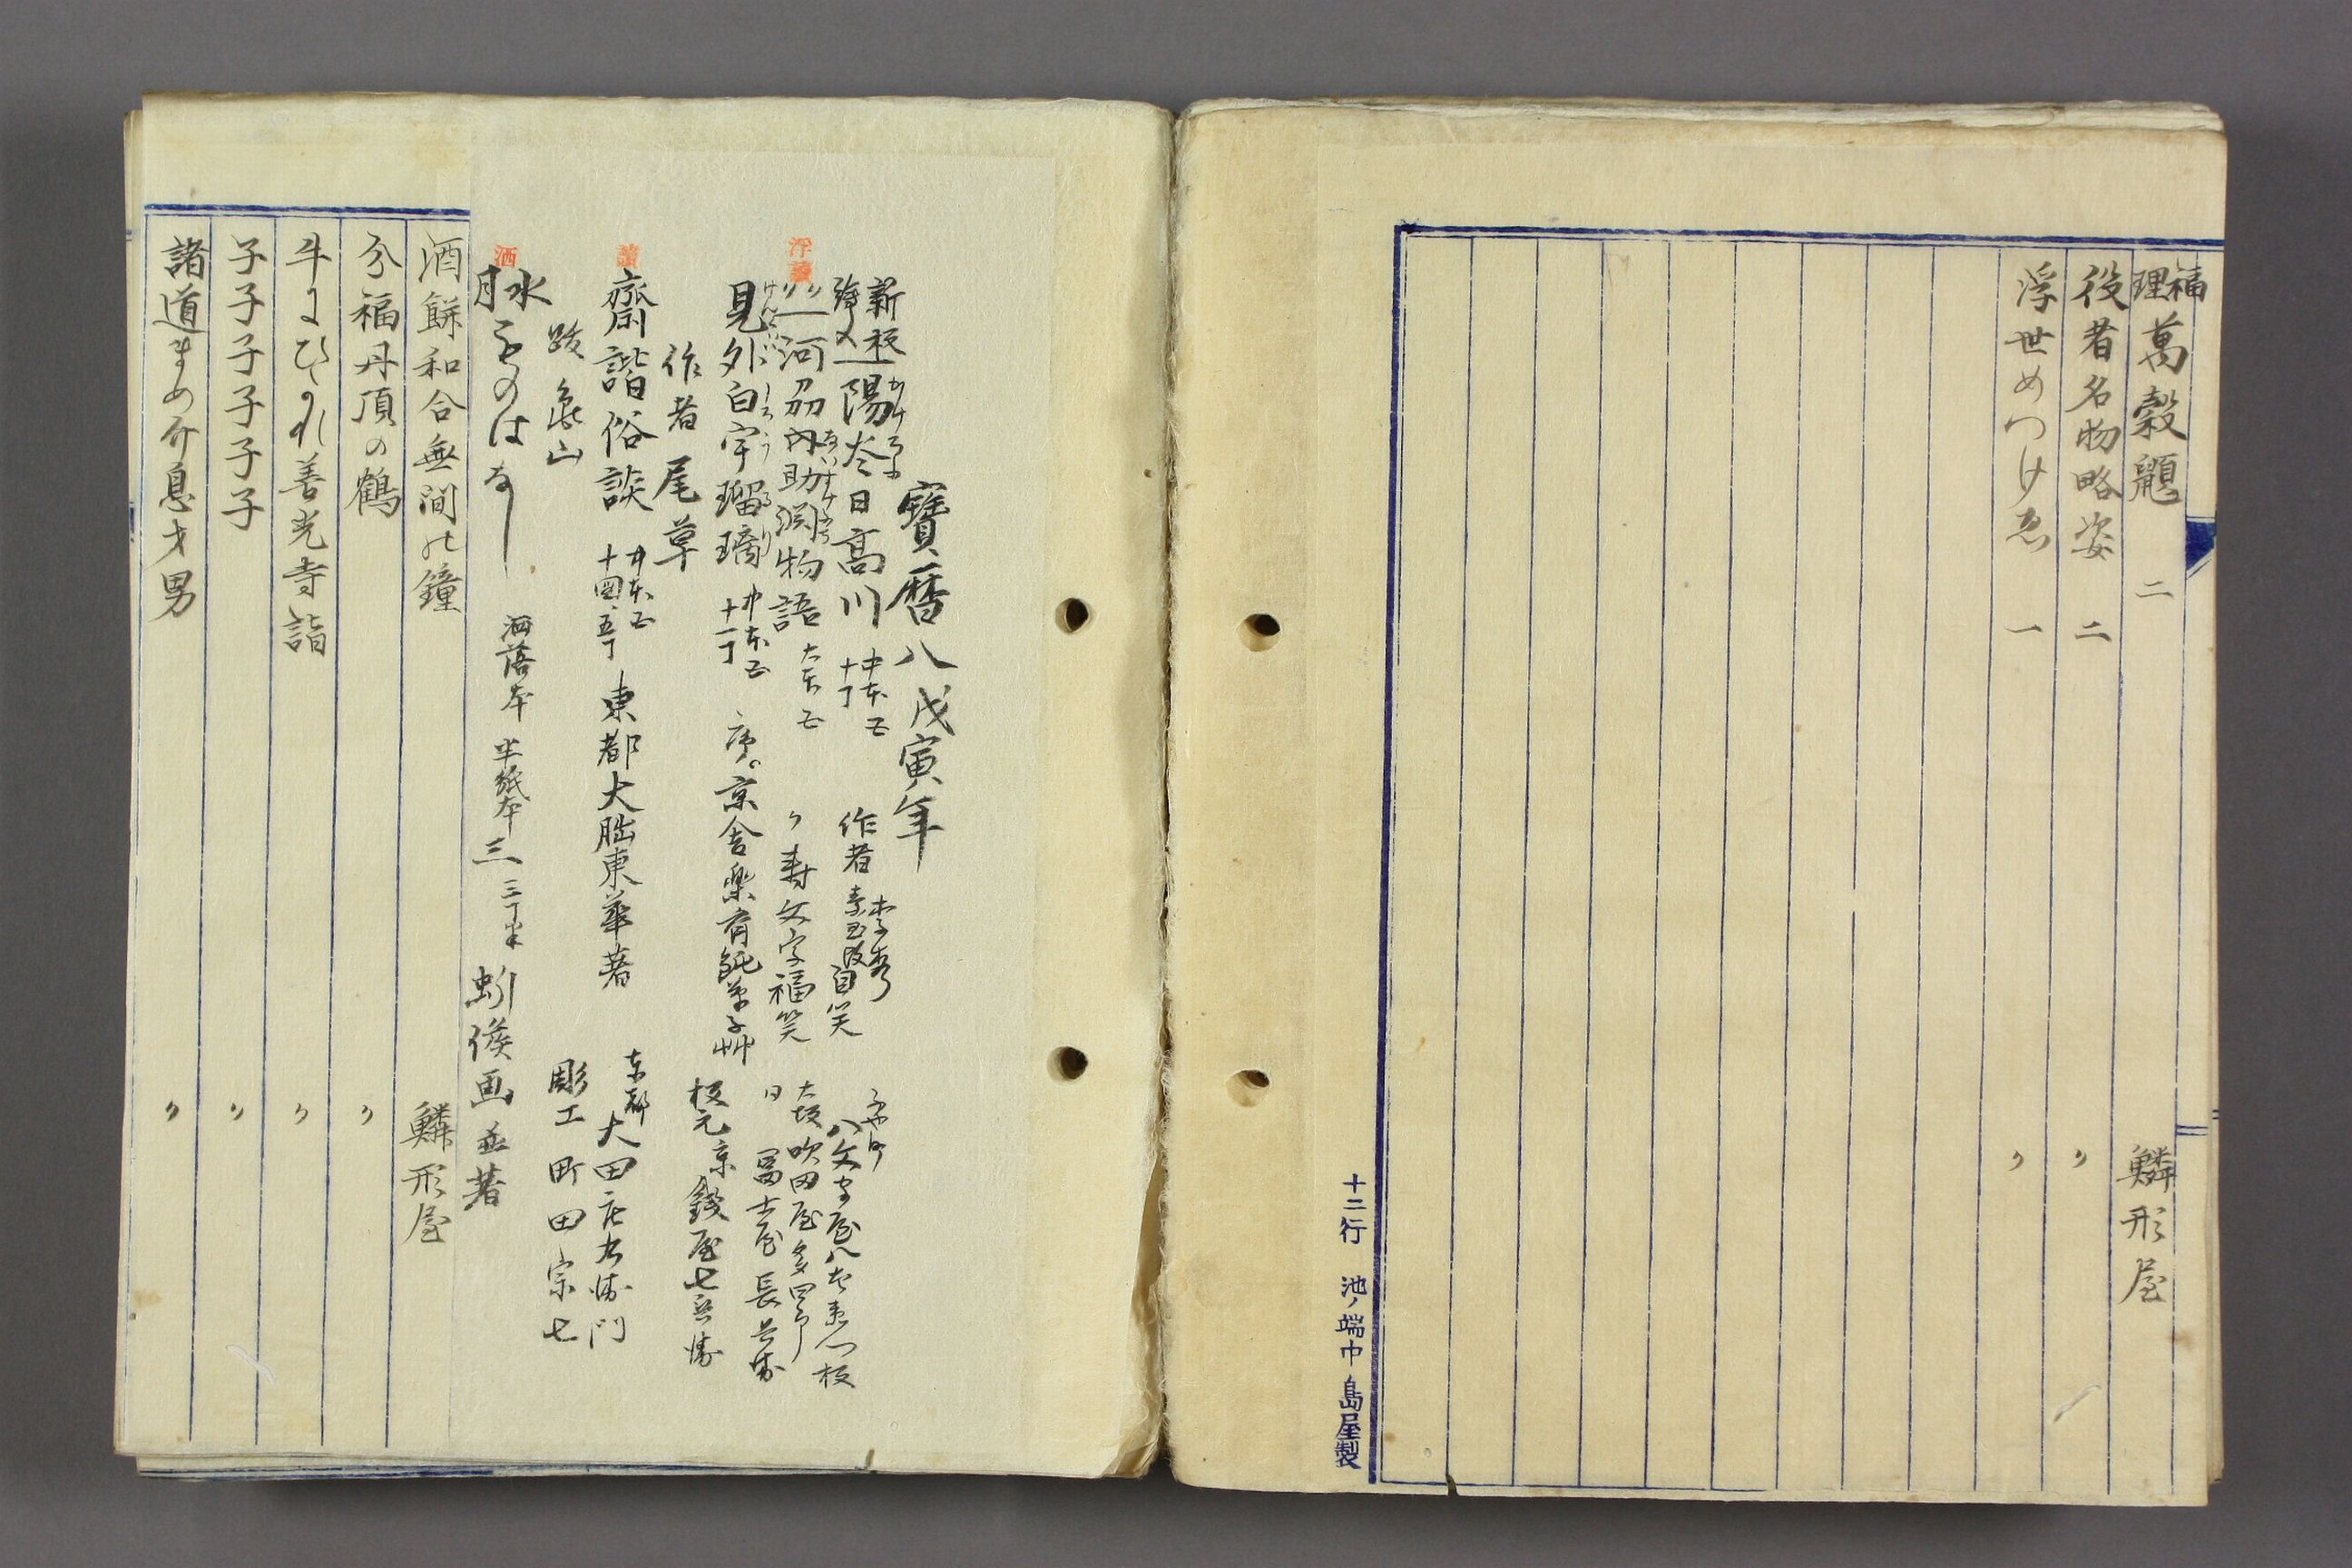 福理 萬穀 二 鱗形屋
役者名物略姿 二 〃
浮世めつけゑ 一 〃
十二行 池ノ端中 島屋製
寶暦八戊寅年
新板繪入 陽炎日高川 中本五 十丁 作者 李秀 素玉 自笑 八文字屋八左衛門板
浮 河内助渕物語 大本五 〃 寿文字福笑 大坂 吹田屋多四郎
日 冨士屋長兵衛
見外白宇瑠璃 中本五 十一丁 序 京舎楽斉鈍草子艸 板元京錢屋七兵衛
作者 尾草
讀 齋諧俗談 中本五 東都大朏東華著 東都 大田庄右衛門
跋 亀山 彫工 町田宗七
洒 水月ものはなし 洒落本 半紙本 三 三丁半 蚓候画並著
酒餅和合無間の鐘 鱗形屋
分福丹頂の鶴 〃
牛にひかれ善光寺詣 〃
子子子子子子 〃
諸道まめ介息才男 〃